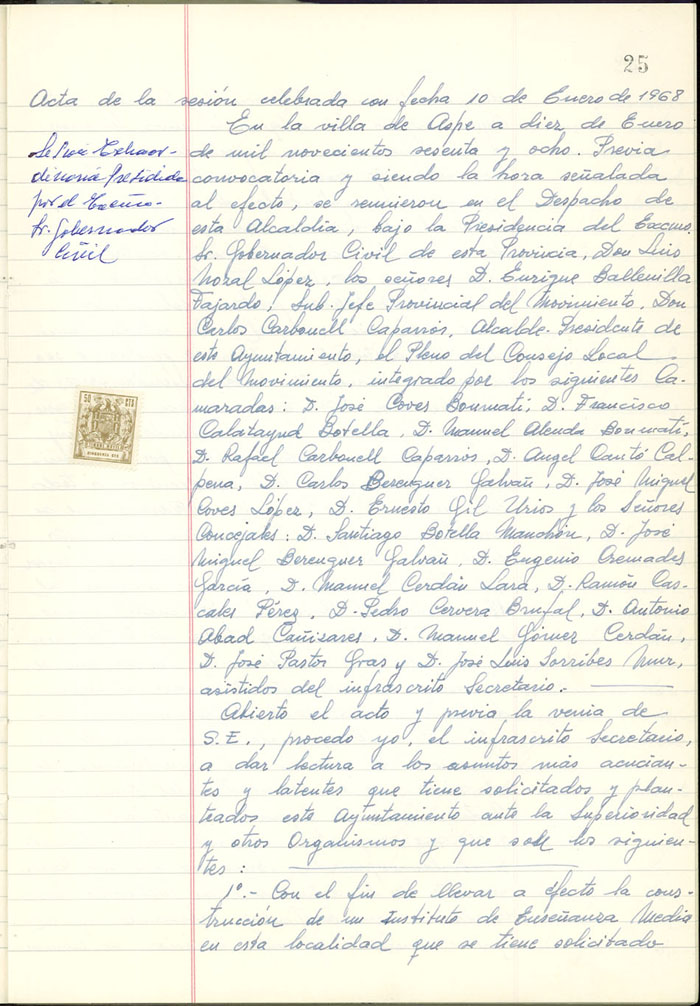 25
Acta de la sesión celebrada con fecha 10 de Enero de 1968
Sesión Extraor-
dinaria Presidida
por el Excmo.
Sr. Gobernador
Civil
En la villa de Aspe a diez de Enero
de mil novecientos sesenta y ocho. Previa
convocatoria y siendo la hora señalada
al efecto, se reunieron en el Despacho de
esta Alcaldía, bajo la Presidencia del Excmo.
Sr. Gobernador Civil de esta Provincia, Don Luis
Nozal López, los señores D. Enrique Ballenilla
Fajardo, Sub-Jefe Provincial del Movimiento, Don
Carlos Carbonell Caparros, Alcalde-Presidente de
este Ayuntamiento, el Pleno del Consejo Local
del Movimiento, integrado por los siguientes Ca-
maradas: D. José Coves Bonmatí, D. Francisco
Calatayud Botella, D. Manuel Alenda Bonmatí,
D. Rafael Carbonell Caparros, D. Angel Cantó Cal-
pena, D. Carlos Berenguer Galvañ, D. José Miguel
Coves López, D. Ernesto Gil Urios y los Señores
Concejales: D. Santiago Botella Manchón, D. José
Miguel Berenguer Galvañ, D. Eugenio Cremades
García, D. Manuel Cerdán Lara, D. Ramón Cas-
cales Pérez, D. Pedro Cervera Brufal, D. Antonio
Abad Cañisares, D. Manuel Gómez Cerdán,
D. José Pastor Gras y D. José Luis Sorribes Mur,
asistidos del infrascrito Secretario.
50 CTS
Abierto el acto y previa la venia de
S.E., procedo yo, el infrascrito Secretario,
a dar lectura a los asuntos más acucian-
tes y latentes que tiene solicitados y plan-
teados este Ayuntamiento ante la Superioridad
y otros Organismos y que son los siguien-
tes:
1º.- Con el fin de llevar a efecto la cons-
trucción de un Instituto de Enseñanza Media
en esta localidad que se tiene solicitado